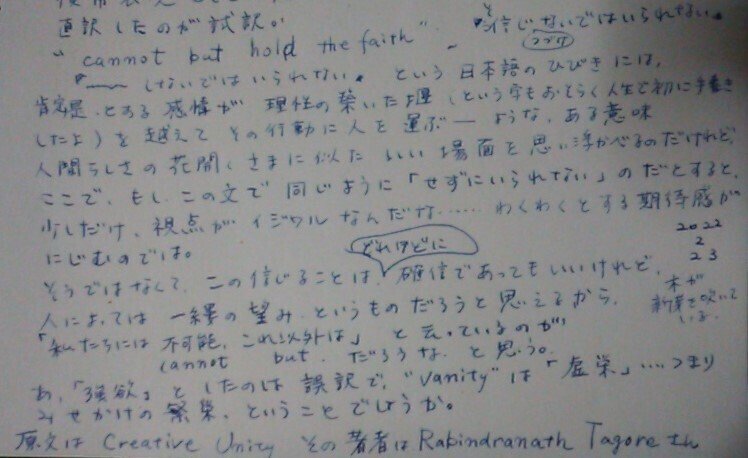 直訳したのが試訳。
"cannot but hold the faith" 〜信じないではいられない。
つづけ
「〜〜 しないではいられない。という日本語のひびきには、
とある感情が 理性の築いた堰 (という字もおそらく人生で初に手書き
したよ) を越えて その行動に人を運ぶ― ような、ある意味
人間らしさの花開くさまに似た いい場面を思い浮かべるのだけれど、
ここで、もし、この文で同じように「せずにいられない」のだとすると、
少しだけ、視点がイジワルなんだな…… わくわくとする期待感が
にじむのでは。
どれほどに
そうではなくて、この信じることは、確信であってもいいけれど、
人によっては 一縷の望み、というものだろうと思えるから、
「私たちには 不可能、これ以外は」と云っているのが
cannot but だろうな、と思う。
あ、「強欲」としたのは 誤訳で、"vanity"は「虚栄」……つまり
みせかけの繁栄、ということでしょうか。
原文は Creative Unity その著者は Rabindranath Tagore さん
2022
2
23
木が
新芽を吹いて
いるよ